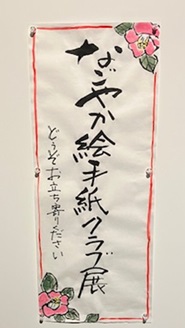 なごやか絵手紙クラブ展
どうぞお立ち寄りください